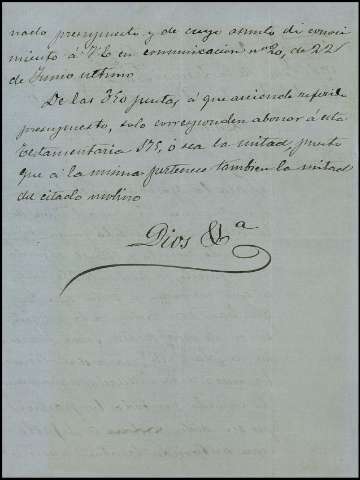 nado presupuesto y de cuyo asunto di conoci
miento á V.E. en comunicacion nº 20, de 22
de Junio ultimo
De las 350 pesetas á que asciende referido
presupuesto, solo corresponden abonar á esta
testamentaria 175, ó sea la mitad, puesto
que á la misma pertenece tambien la mitad
del citado molino
Dios &a